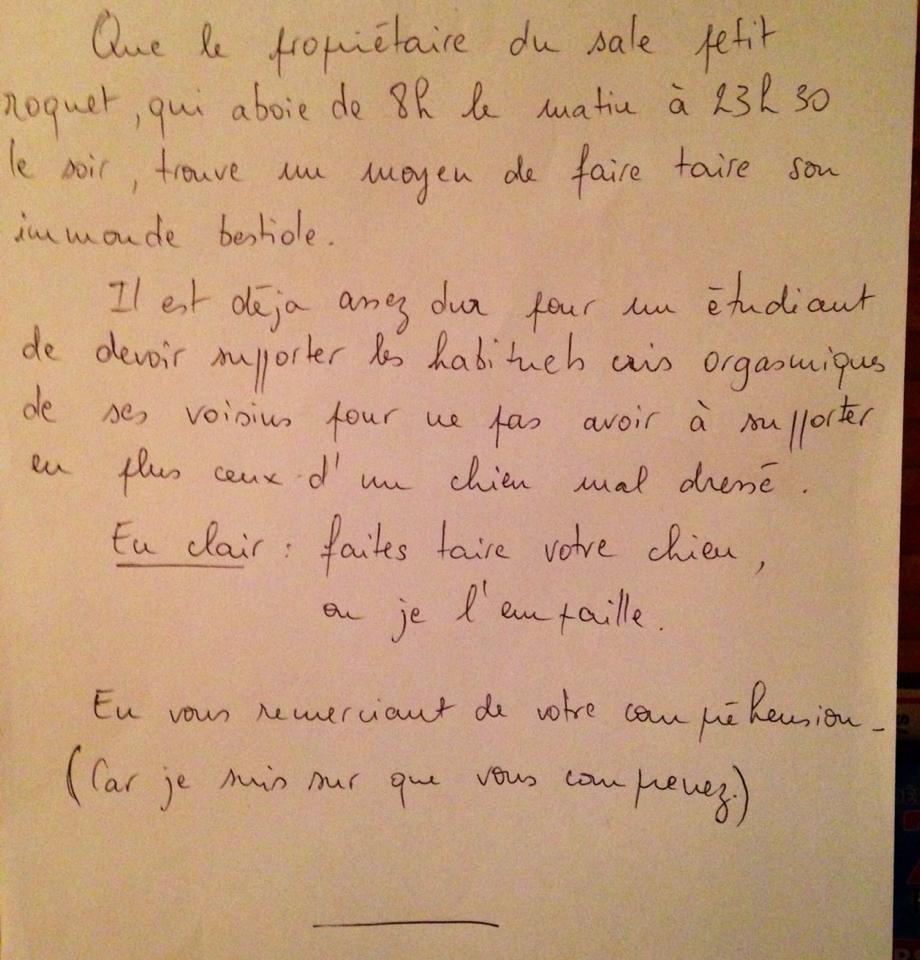 Que le propriétaire du sale petit
roquet, qui aboie de 8h le matin à 23h30
le soir, trouve un moyen de faire taire son
immonde bestiole.
Il est déja assez dur pour un étudiant
de devoir supporter les habituels cris orgasmiques
de ses voisins pour ne pas avoir à supporter
en plus ceux d'un chien mal dressé.
En clair : faites taire votre chien,
ou je l'empaille.
En vous remerciant de votre compréhension_
(Car je suis sur que vous comprenez.)